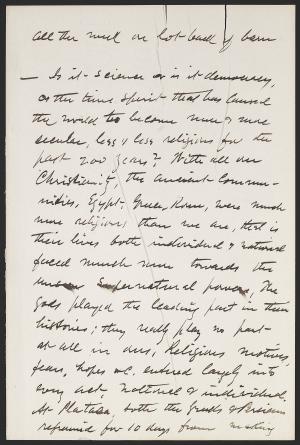 all the well on lot back of barn
— Is it science or is it democracy,
or the time spirit that has caused
the world to become more & more
secular, less & less religious for the
past 200 years? With all our
Christianity, the ancient commun-
ities, Egypt, Greece, Rome, were much
more religious than we are, that is
their lives both individual & national
faced much more towards the
unseen Supernatural powers, The
gods played the leading part in their
histories; they really play no part
at all in ours, Religious motives,
fears, hopes &c. entered largely into
every act, national & individual.
At Plataea, both the Greeks & Persians
refrained for 10 days from making